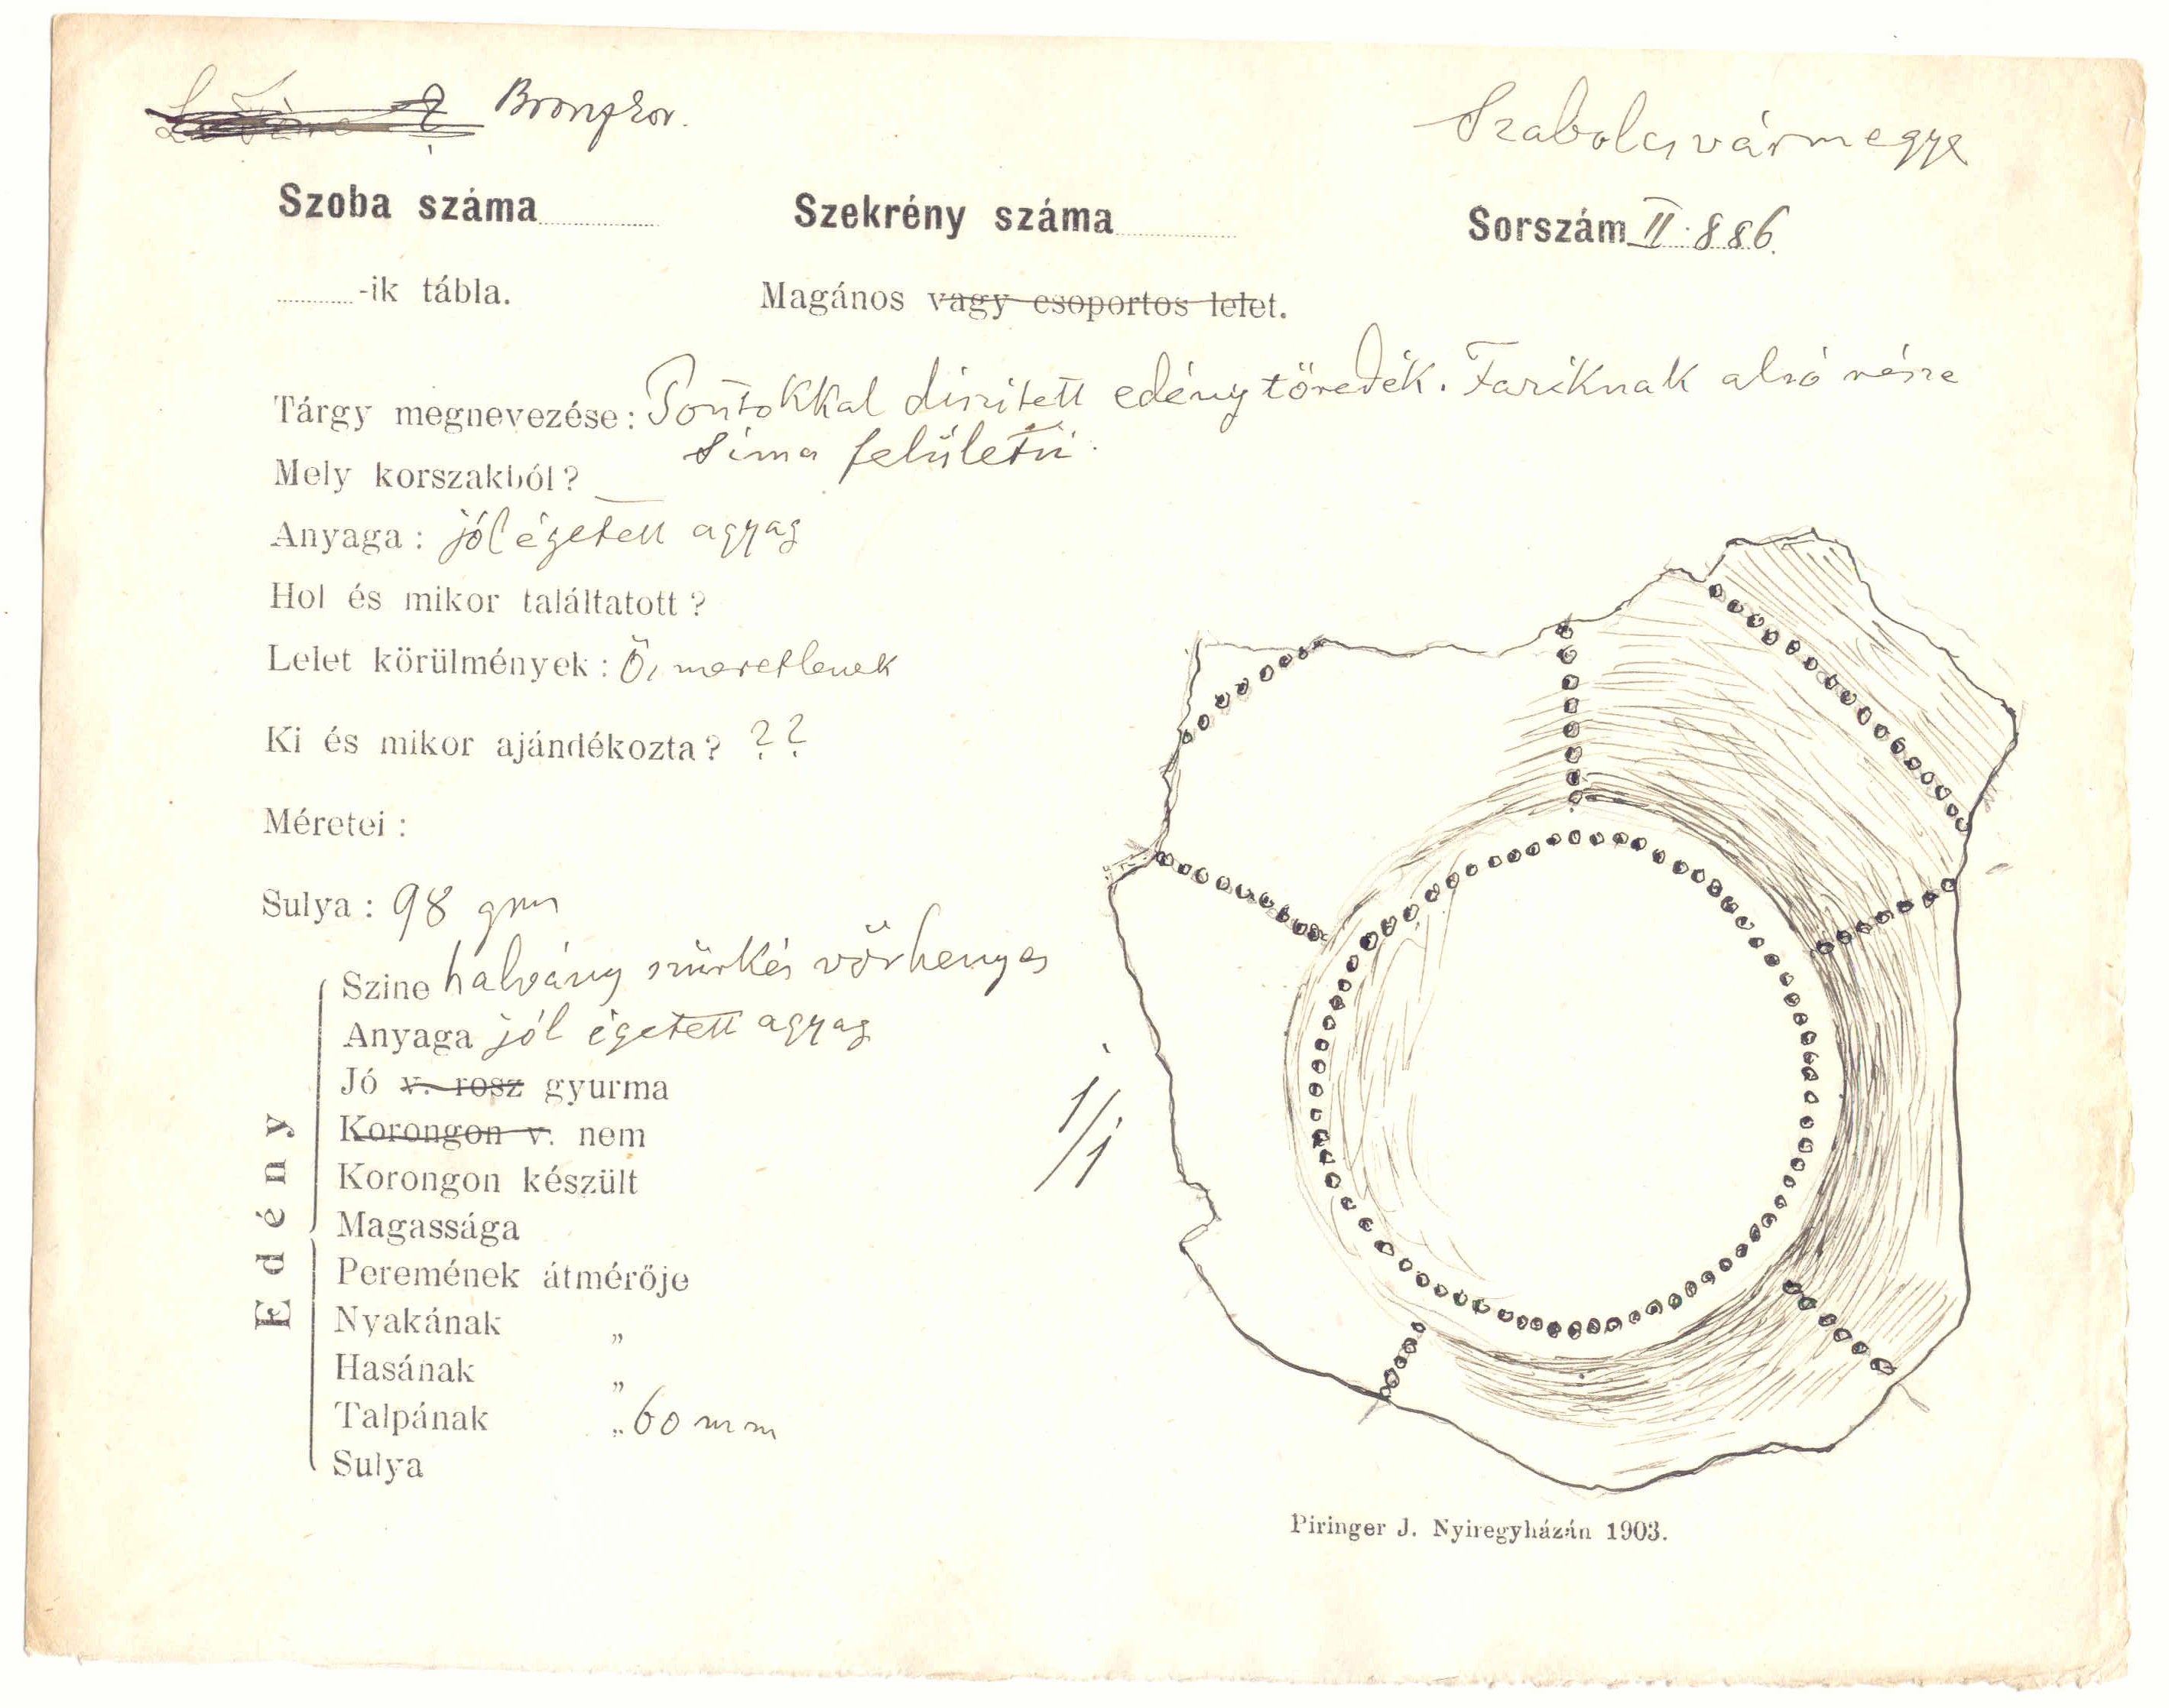 Bronzkor.
Szabolcsvármegye
Szoba száma
Szekrény száma
Sorszám II. 886.
-ik tábla.
Magános vagy csoportos lelet.
Tárgy megnevezése: Pontokkal diszitett edény töredék. Fazéknak alsó része
sima felületű.
Mely korszakból? —
Anyaga: jól égetett agyag
Hol és mikor találtatott?
Lelet körülmények: Ösmeretlenek
Ki és mikor ajándékozta? ??
Méretei:
Sulya: 98 grm
Szine halvány szürkés vörhenyes
Anyaga jól égetett agyag
Jó v. rosz gyurma
Korongon v. nem
Korongon készült
Magassága
Peremének átmérője
Nyakának „
Hasának „
Talpának „ 60 mm
Sulya
Edény
1/1
Piringer J. Nyiregyházán 1903.